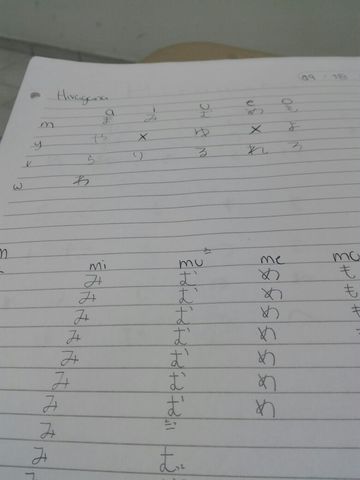 Hiragana
a i u e o
m ま み む め も
y や × ゆ × よ
r ら り る れ ろ
w わ
mi mu me
み む め も
み む め も
み む め
み む め
み む め
み む め
み む め
み
み む